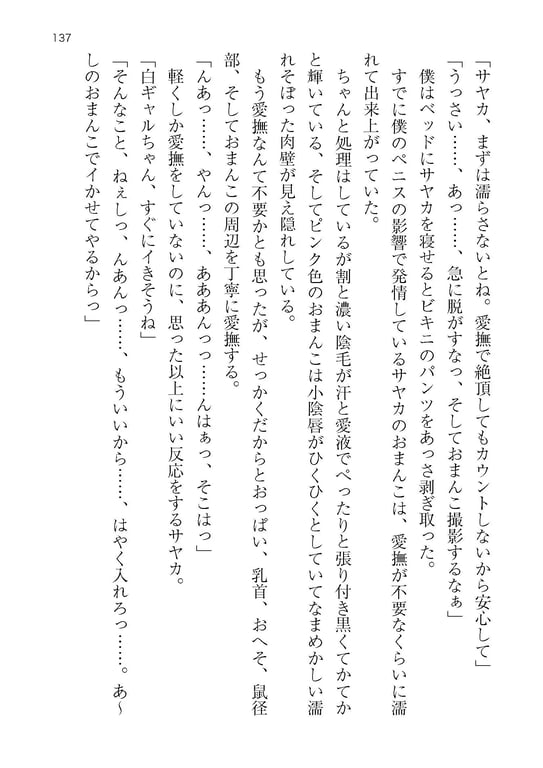 137
「サヤカ、まずは濡らさないとね。愛撫で絶頂してもカウントしないから安心して」
「うっさい……、あっ……、急に脱がすなっ、そしておまんこ撮影するなぁ」
僕はベッドにサヤカを寝せるとビキニのパンツをあっさ剥ぎ取った。
すでに僕のペニスの影響で発情しているサヤカのおまんこは、愛撫が不要なくらいに濡
れて出来上がっていた。
ちゃんと処理はしているが割と濃い陰毛が汗と愛液でぺったりと張り付き黒くてかてか
と輝いている、そしてピンク色のおまんこは小陰唇がひくひくとしていてなまめかしい濡
れそぼった肉壁が見え隠れしている。
もう愛撫なんて不要かとも思ったが、せっかくだからとおっぱい、乳首、おへそ、鼠径
部、そしておまんこの周辺を丁寧に愛撫する。
「んあっ……、やんっ……、あああんっっ……んはぁっ、そこはっ」
軽くしか愛撫をしていないのに、思った以上にいい反応をするサヤカ。
「白ギャルちゃん、すぐにイきそうね」
「そんなこと、ねぇしっ、んあんっ……、もういいから……、はやく入れろっ……。あ〜
しのおまんこでイかせてやるからっ」